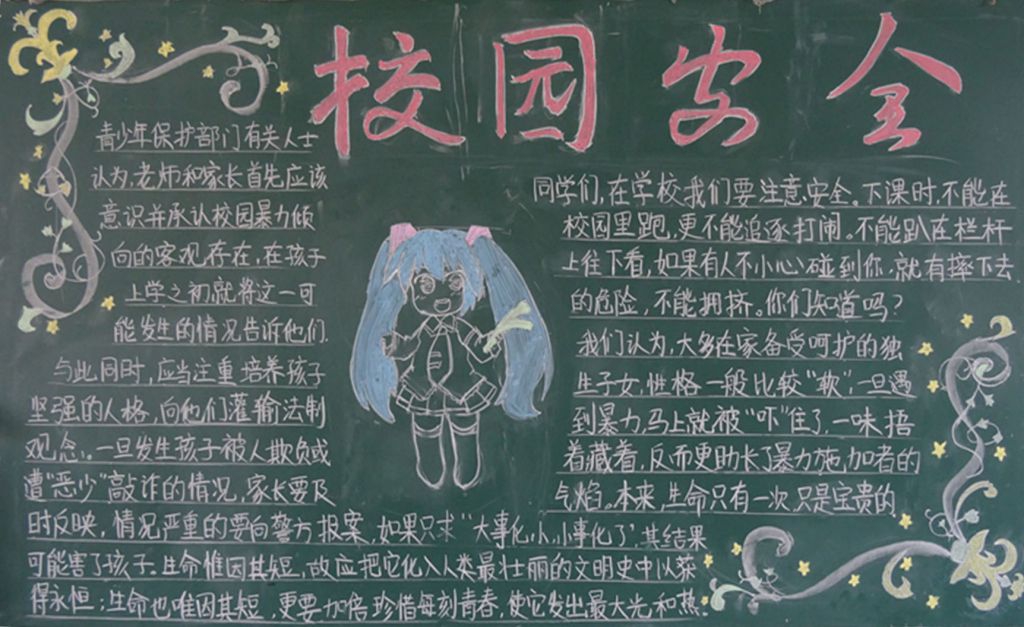 校园安全
青少年保护部门有关人士
认为,老师和家长首先应该
意识并承认校园暴力倾
向的客观存在,在孩子
上学之初就将这一可
能发生的情况告诉他们.
与此同时,应当注重培养孩子
坚强的人格,向他们灌输法制
观念。一旦发生孩子被人欺负或
遭“恶少”敲诈的情况,家长要及
时反映,情况严重的要向警方报案,如果只求“大事化小,小事化了”,其结果
可能害了孩子.生命惟因其短,故应把它化入人类最壮丽的文明史中以获
得永恒;生命也唯因其短,更要加倍珍惜每刻青春,使它发出最大光和热.
同学们,在学校我们要注意安全。下课时,不能在
校园里跑,更不能追逐打闹。不能趴在栏杆
上往下看,如果有人不小心碰到你,就有摔下去
的危险,不能拥挤。你们知道吗?
我们认为,大多在家备受呵护的独
生子女,性格一般比较“软”,一旦遇
到暴力,马上就被“吓”住了,一味捂
着藏着,反而更助长了暴力施加者的
气焰。本来,生命只有一次,只是宝贵的,